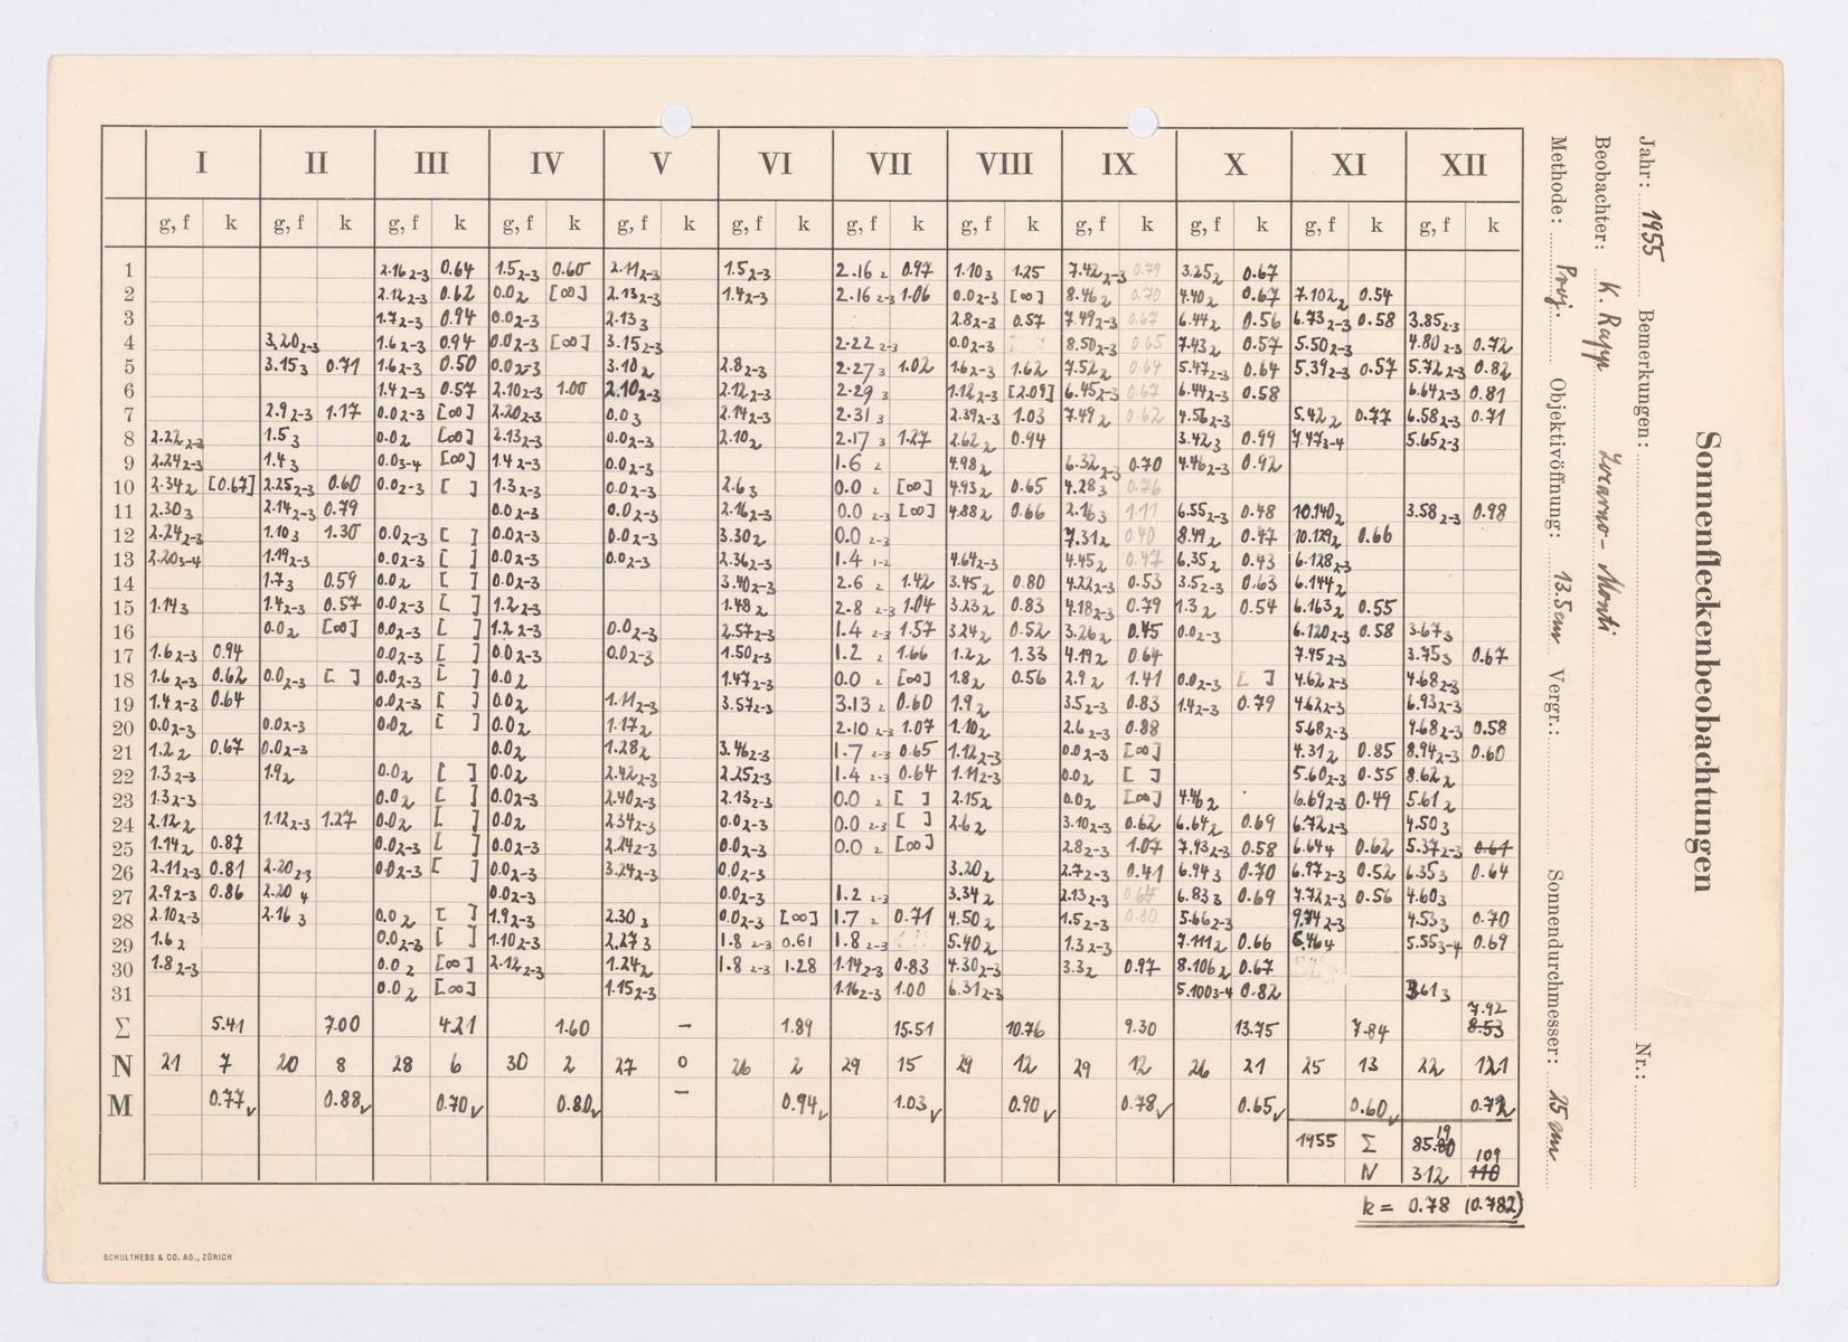 Sonnenfleckenbeobachtungen
Jahr: 1955 Bemerkungen: Nr.:
Beobachter: K. Rapp Locarno-Monti
Methode: Proj. Objektivöffnung: 13.5cm Vergr.: Sonnendurchmesser: 25 cm
I II III IV V VI VII VIII IX X XI XII
g, f k g, f k g, f k g, f k g, f k g, f k g, f k g, f k g, f k g, f k g, f k g, f k
1 2.16 2-3 0.64 1.5 2-3 0.60 2.11 2-3 1.5 2-3 2.16 2 0.97 1.10 3 1.25 7.42 2-3 0.79 3.25 2 0.67
2 2.12 2-3 0.62 0.0 2 [∞] 2.13 2-3 1.4 2-3 2.16 2-3 1.06 0.0 2-3 [∞] 8.46 2 0.70 4.40 2 0.67 7.102 2 0.54
3 1.7 2-3 0.94 0.0 2-3 2.13 3 2.8 2-3 0.57 7.49 2-3 0.67 6.44 2 0.56 6.73 2-3 0.58 3.85 2-3
4 3.20 2-3 1.6 2-3 0.94 0.0 2-3 [∞] 3.15 2-3 2.22 2-3 0.0 2-3 8.50 2-3 0.65 7.43 2 0.57 5.50 2-3 4.80 2-3 0.72
5 3.15 3 0.71 1.6 2-3 0.50 0.0 2-3 3.10 2 2.8 2-3 2.27 3 1.02 1.6 2-3 1.62 7.52 2 0.64 5.47 2-3 0.64 5.39 2-3 0.57 5.72 2-3 0.82
6 1.4 2-3 0.57 2.10 2-3 1.00 2.10 2-3 2.12 2-3 2.29 3 1.12 2-3 [2.09] 6.45 2-3 0.67 6.44 2-3 0.58 6.64 2-3 0.81
7 2.9 2-3 1.17 0.0 2-3 [∞] 2.20 2-3 0.0 3 2.14 2-3 2.31 3 2.39 2-3 1.03 7.49 2 0.62 4.56 2-3 5.42 2 0.77 6.58 2-3 0.71
8 2.22 2-3 1.5 3 0.0 2 [∞] 2.13 2-3 0.0 2-3 2.10 2 2.17 3 1.27 2.62 2 0.94 3.42 3 0.99 7.47 3-4 5.65 2-3
9 2.24 2-3 1.4 3 0.0 3-4 [∞] 1.4 2-3 0.0 2-3 1.6 2 4.98 2 6.32 2-3 0.70 4.46 2-3 0.92
10 2.34 2 [0.67] 2.25 2-3 0.60 0.0 2-3 [ ] 1.3 2-3 0.0 2-3 2.6 3 0.0 2 [∞] 4.93 2 0.65 4.28 3 0.76
11 2.30 3 2.14 2-3 0.79 0.0 2-3 0.0 2-3 2.16 2-3 0.0 2-3 [∞] 4.88 2 0.66 2.16 3 1.11 6.55 2-3 0.48 10.140 2 3.58 2-3 0.98
12 2.24 2-3 1.10 3 1.30 0.0 2-3 [ ] 0.0 2-3 0.0 2-3 3.30 2 0.0 2-3 7.31 2 0.40 8.49 2 0.47 10.129 2 0.66
13 2.20 3-4 1.19 2-3 0.0 2-3 [ ] 0.0 2-3 0.0 2-3 2.36 2-3 1.4 1-2 4.64 2-3 4.45 2 0.47 6.35 2 0.43 6.128 2-3
14 1.7 3 0.59 0.0 2 [ ] 0.0 2-3 3.40 2-3 2.6 2 1.42 3.45 2 0.80 4.22 2-3 0.53 3.5 2-3 0.63 6.144 2
15 1.14 3 1.4 2-3 0.57 0.0 2-3 [ ] 1.2 2-3 1.48 2 2.8 2-3 1.04 3.23 2 0.83 4.18 2-3 0.79 1.3 2 0.54 6.163 2 0.55
16 0.0 2 [∞] 0.0 2-3 [ ] 1.2 2-3 0.0 2-3 2.57 2-3 1.4 2-3 1.57 3.24 2 0.52 3.26 2 0.45 0.0 2-3 6.120 2-3 0.58 3.67 3
17 1.6 2-3 0.94 0.0 2-3 [ ] 0.0 2-3 0.0 2-3 1.50 2-3 1.2 2 1.66 1.2 2 1.33 4.19 2 0.64 7.95 2-3 3.75 3 0.67
18 1.6 2-3 0.62 0.0 2-3 [ ] 0.0 2-3 [ ] 0.0 2 1.47 2-3 0.0 2 [∞] 1.8 2 0.56 2.9 2 1.41 0.0 2-3 [ ] 4.62 2-3 4.68 2-3
19 1.4 2-3 0.64 0.0 2-3 [ ] 0.0 2 1.11 2-3 3.57 2-3 3.13 2 0.60 1.9 2 3.5 2-3 0.83 1.4 2-3 0.79 4.62 2-3 6.93 2-3
20 0.0 2-3 0.0 2-3 0.0 2 [ ] 0.0 2 1.17 2 2.10 2-3 1.07 1.10 2 2.6 2-3 0.88 5.68 2-3 9.68 2-3 0.58
21 1.2 2 0.67 0.0 2-3 0.0 2 1.28 2 3.46 2-3 1.7 2-3 0.65 1.12 2-3 0.0 2-3 [∞] 4.31 2 0.85 8.94 2-3 0.60
22 1.3 2-3 1.9 2 0.0 2 [ ] 0.0 2 2.42 2-3 2.25 2-3 1.4 2-3 0.64 1.11 2-3 0.0 2 [ ] 5.60 2-3 0.55 8.62 2
23 1.3 2-3 0.0 2 [ ] 0.0 2-3 2.40 2-3 2.13 2-3 0.0 2 [ ] 2.15 2 0.0 2 [∞] 4.46 2 6.69 2-3 0.49 5.61 2
24 2.12 2 1.12 2-3 1.27 0.0 2 [ ] 0.0 2 2.34 2-3 0.0 2-3 0.0 2-3 [ ] 2.6 2 3.10 2-3 0.62 6.64 2 0.69 6.72 2-3 4.50 3
25 1.14 2 0.87 0.0 2-3 [ ] 0.0 2-3 2.24 2-3 0.0 2-3 0.0 2 [∞] 2.8 2-3 1.07 7.93 2-3 0.58 6.64 4 0.62 5.37 2-3 0.61
26 2.11 2-3 0.81 2.20 2-3 0.0 2-3 [ ] 0.0 2-3 3.24 2-3 0.0 2-3 3.20 2 2.7 2-3 0.41 6.94 3 0.70 6.97 2-3 0.52 6.35 3 0.64
27 2.9 2-3 0.86 2.20 4 0.0 2-3 0.0 2-3 1.2 2-3 3.34 2 2.13 2-3 0.67 6.83 3 0.69 7.72 2-3 0.56 4.60 3
28 2.10 2-3 2.16 3 0.0 2 [ ] 1.9 2-3 2.30 3 0.0 2-3 [∞] 1.7 2 0.71 4.50 2 1.5 2-3 0.80 5.66 2-3 9.74 2-3 4.53 3 0.70
29 1.6 2 0.0 2-3 [ ] 1.10 2-3 2.27 3 1.8 2-3 0.61 1.8 2-3 5.40 2 1.3 2-3 7.111 2 0.66 6.46 4 5.55 3-4 0.69
30 1.8 2-3 0.0 2 [∞] 2.12 2-3 1.24 2 1.8 2-3 1.28 1.14 2-3 0.83 4.30 2-3 3.3 2 0.97 8.106 2 0.67
31 0.0 2 [∞] 1.15 2-3 1.16 2-3 1.00 6.31 2-3 5.100 3-4 0.82 3.61 3
7.92
Σ 5.41 7.00 4.21 1.60 – 1.89 15.51 10.76 9.30 13.75 7.84 8.53
N 21 7 20 8 28 6 30 2 27 0 26 2 29 15 29 12 29 12 26 21 25 13 22 121
M 0.77 0.88 0.70 0.80 – 0.94 1.03 0.90 0.78 0.65 0.60 0.72
1955 Σ 85.80 19
N 312 110 109
k = 0.78 (0.782)
SCHULTHESS & CO. AG., ZÜRICH